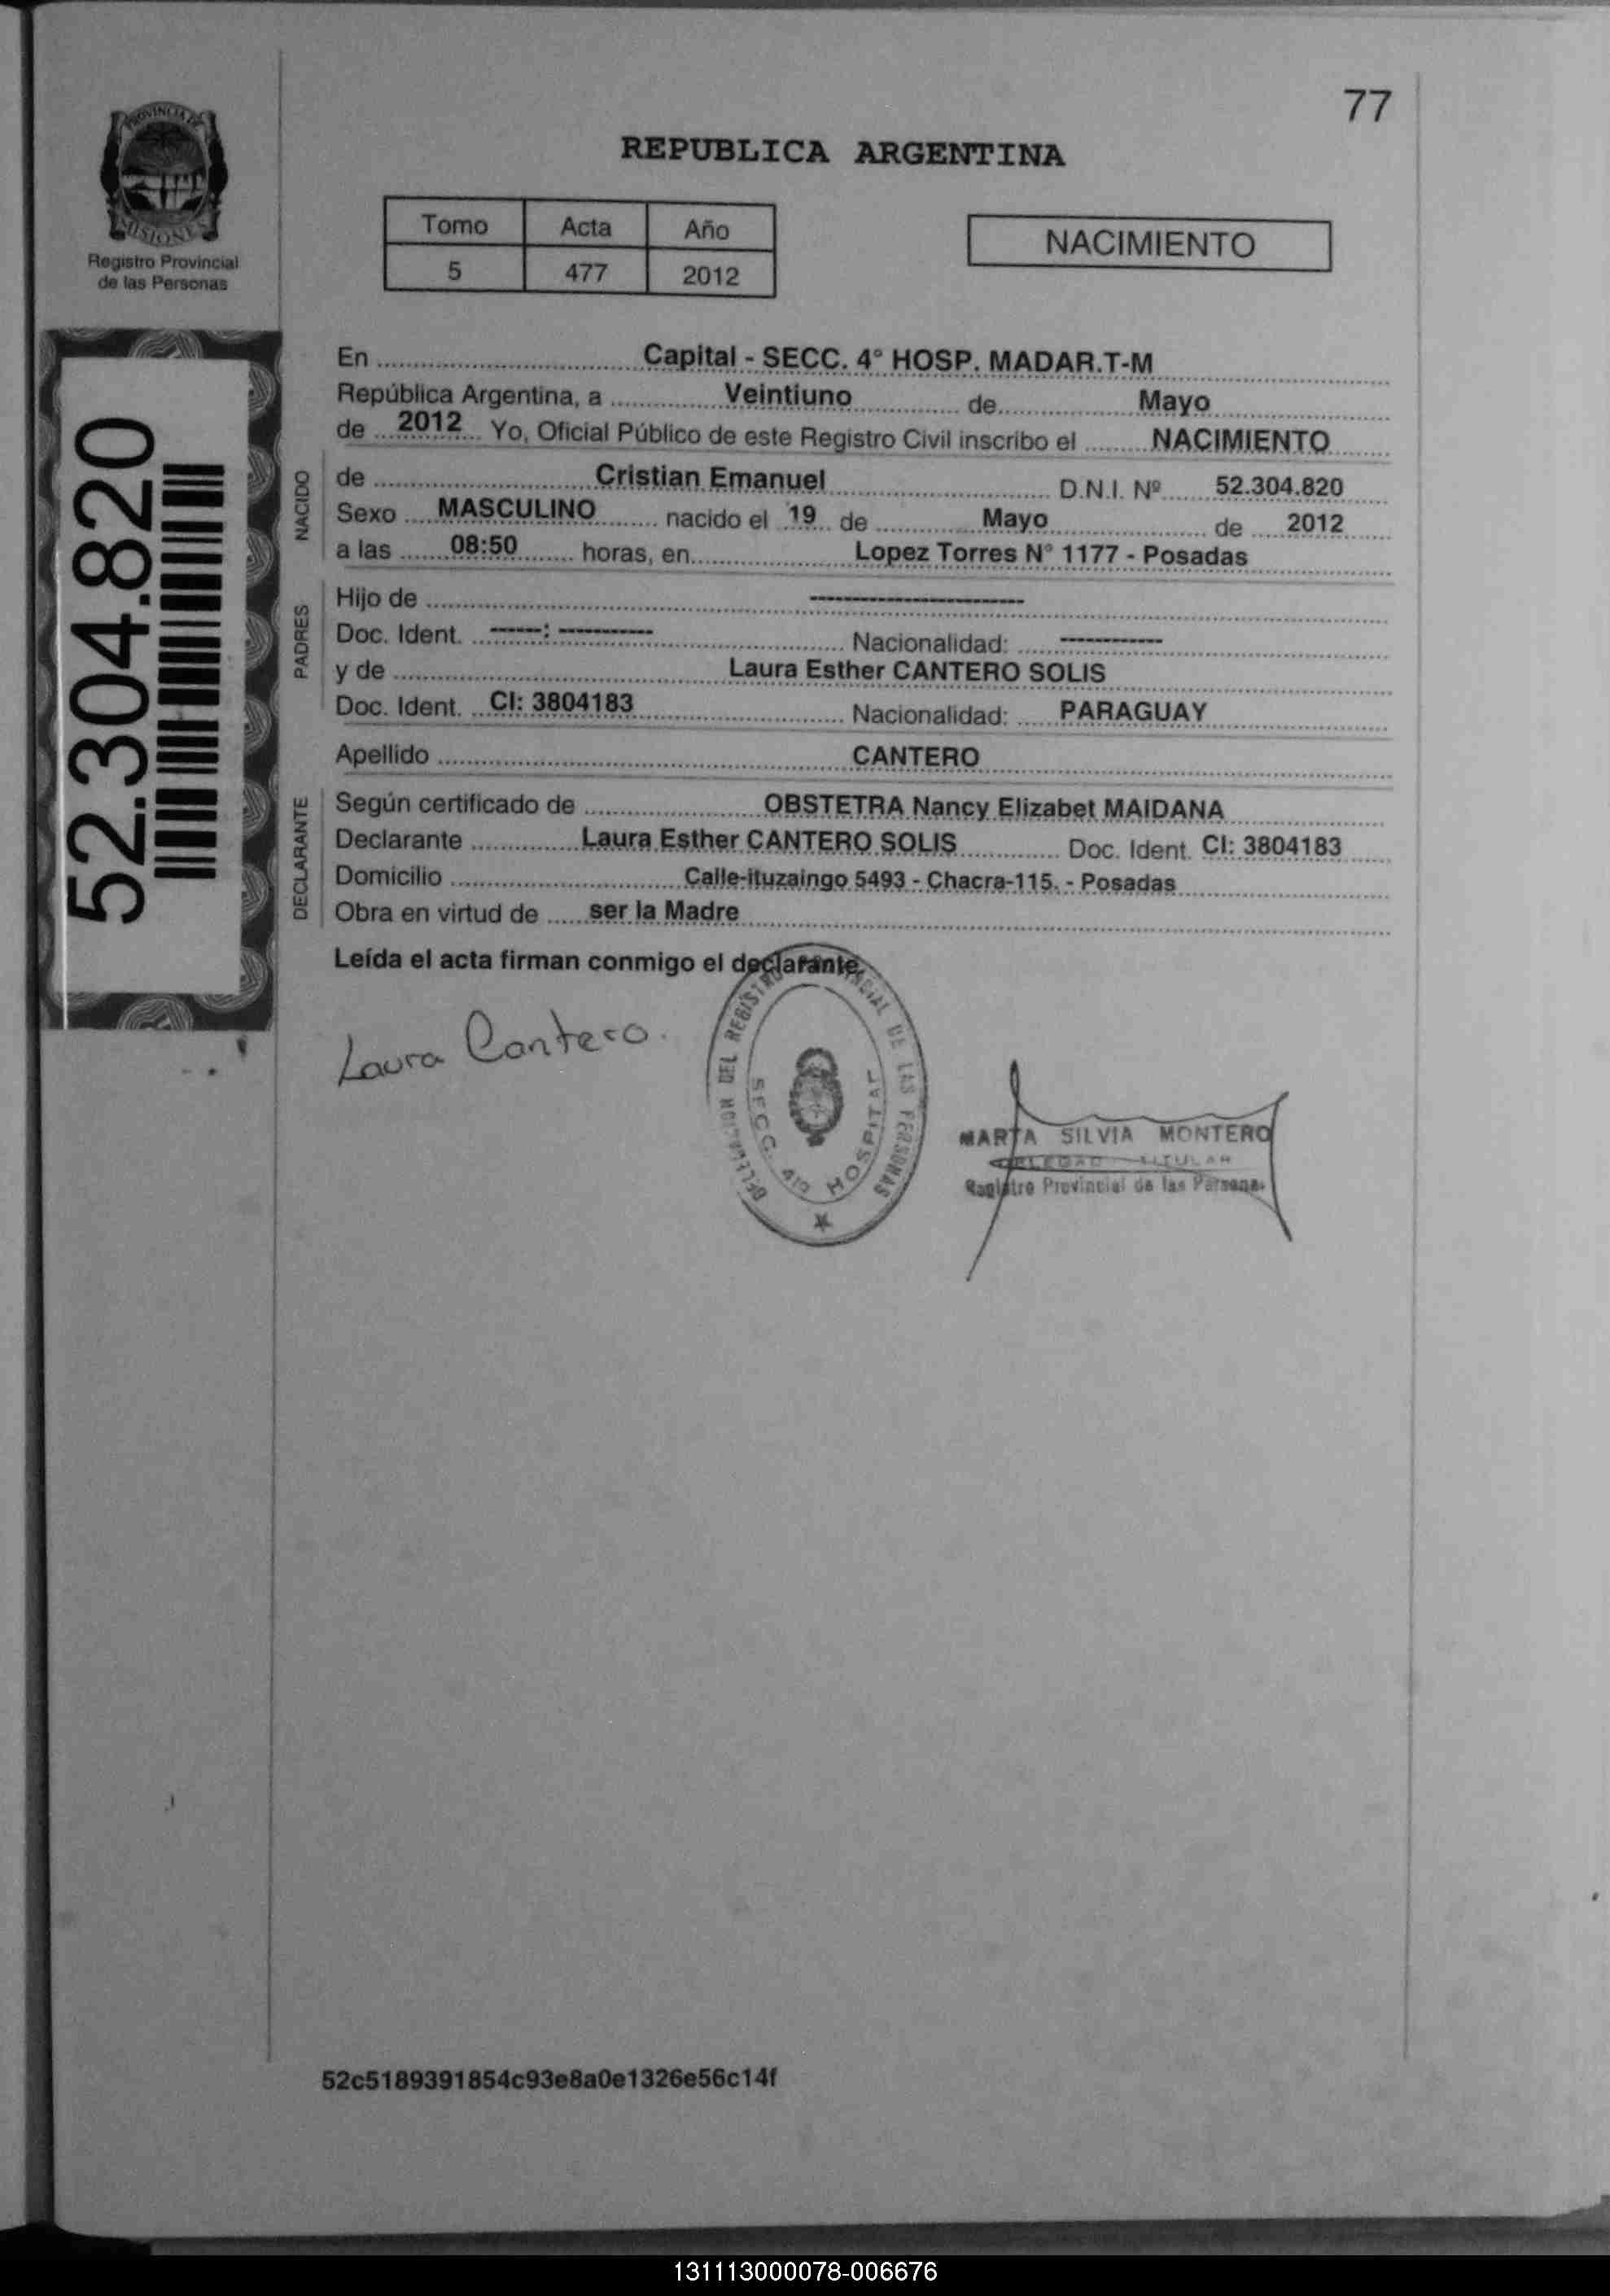 77
PROVINCIA DE
MISIONES
Registro Provincial
de las Personas
REPUBLICA ARGENTINA
Tomo Acta Año
5 477 2012
NACIMIENTO
52.304.820
En Capital - SECC. 4° HOSP. MADAR.T-M
República Argentina, a Veintiuno de Mayo
de 2012 Yo, Oficial Público de este Registro Civil inscribo el NACIMIENTO
NACIDO
de Cristian Emanuel D.N.I. Nº 52.304.820
Sexo MASCULINO nacido el 19 de Mayo de 2012
a las 08:50 horas, en Lopez Torres N° 1177 - Posadas
PADRES
Hijo de -----------------------
Doc. Ident. ------: ----------- Nacionalidad: ------------
y de Laura Esther CANTERO SOLIS
Doc. Ident. CI: 3804183 Nacionalidad: PARAGUAY
Apellido CANTERO
DECLARANTE
Según certificado de OBSTETRA Nancy Elizabet MAIDANA
Declarante Laura Esther CANTERO SOLIS Doc. Ident. CI: 3804183
Domicilio Calle-ituzaingo 5493 - Chacra-115. - Posadas
Obra en virtud de ser la Madre
Leída el acta firman conmigo el declarante.
Laura Cantero.
DEL REGISTRO DE LAS PERSONAS
SECC. 4ta HOSPITAL
MARTA SILVIA MONTERO
TITULAR
Registro Provincial de las Personas
52c5189391854c93e8a0e1326e56c14f
131113000078-006676